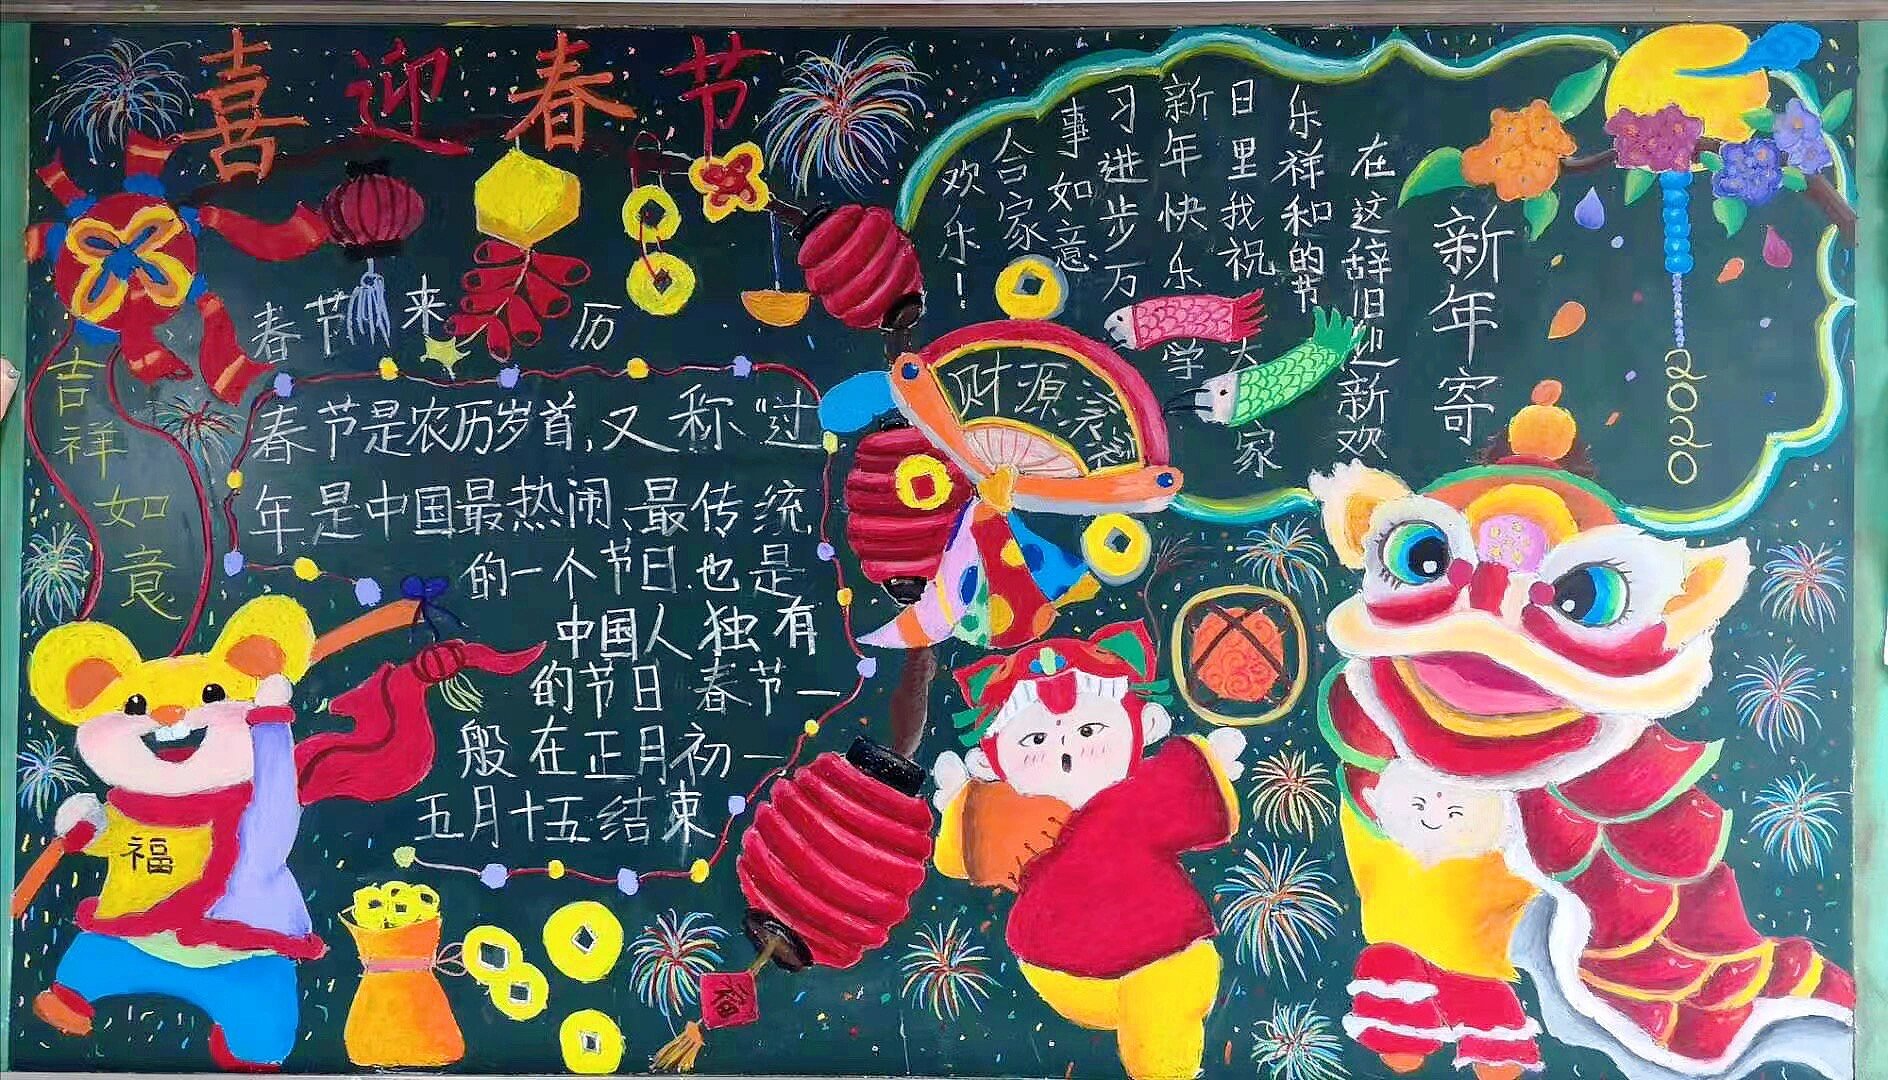 喜迎春节
春节来历
春节是农历岁首,又称“过
年.是中国最热闹、最传统
的一个节日.也是
中国人独有
的节日 春节一
般在正月初一
五月十五结束
吉祥如意
福
财源滚滚
新年寄
在这辞旧迎新欢
乐祥和的节
日里我祝大家
新年快乐学
习进步万
事如意
合家
欢乐!
2020
福